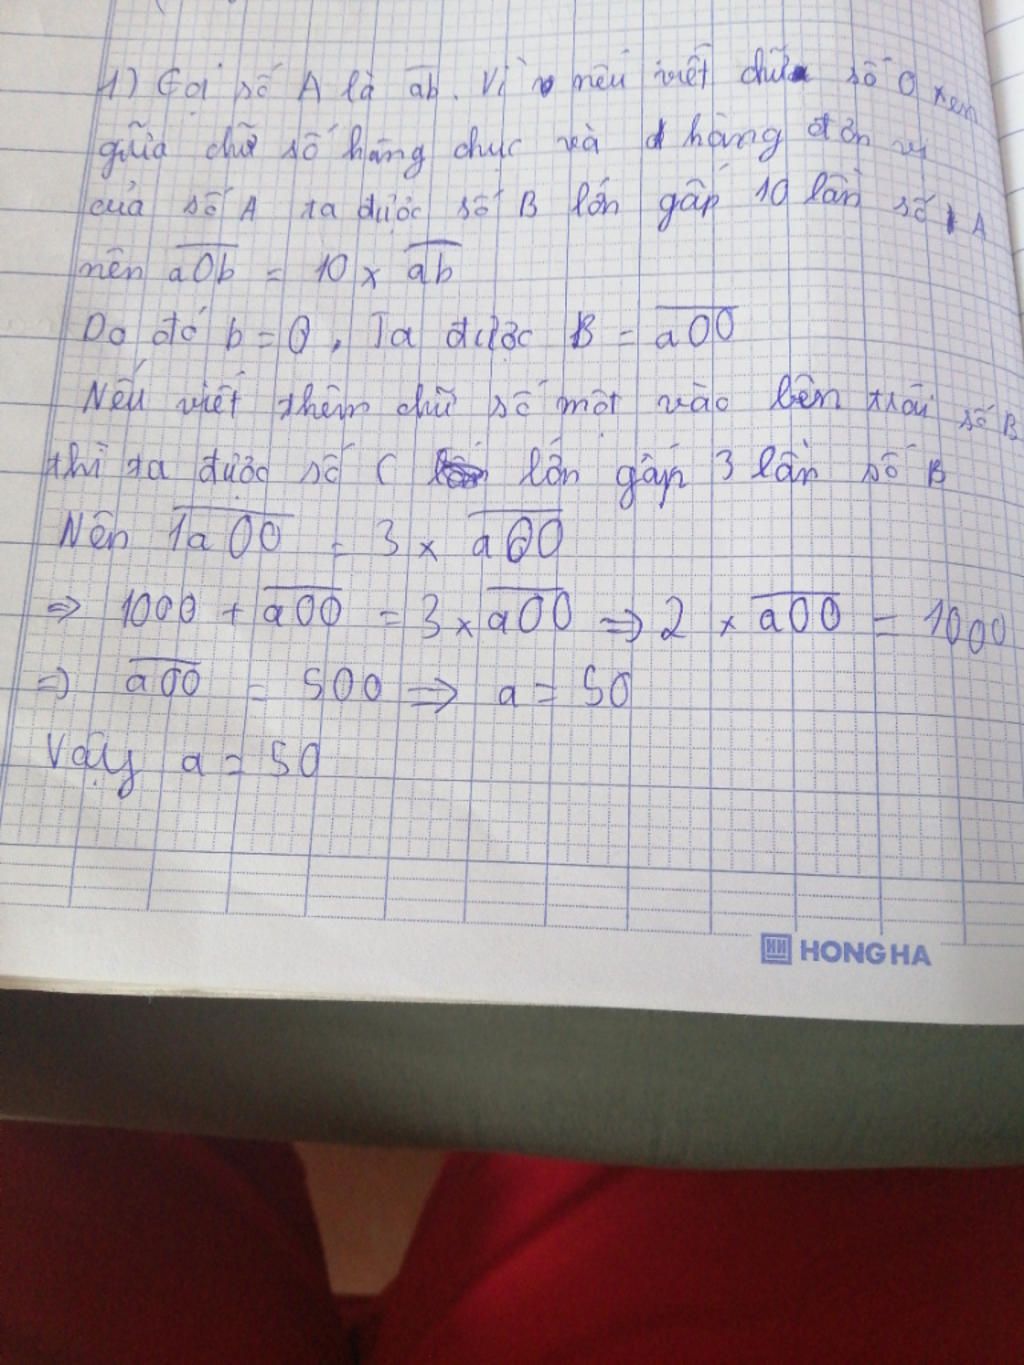 1) Gọi số A là ab. Vì nếu viết chữ số 0 xen
giữa chữ số hàng chục và hàng đơn vị
của số A ta được số B lớn gấp 10 lần số A
nên a0b = 10 x ab
Do đó b = 0, Ta được B = a00
Nếu viết thêm chữ số một vào bên trái số B
thì ta được số C lớn gấp 3 lần số B
Nên 1a00 = 3 x a00
=> 1000 + a00 = 3 x a00 => 2 x a00 = 1000
=> a00 = 500 => a = 50
Vậy a = 50
HONG HA